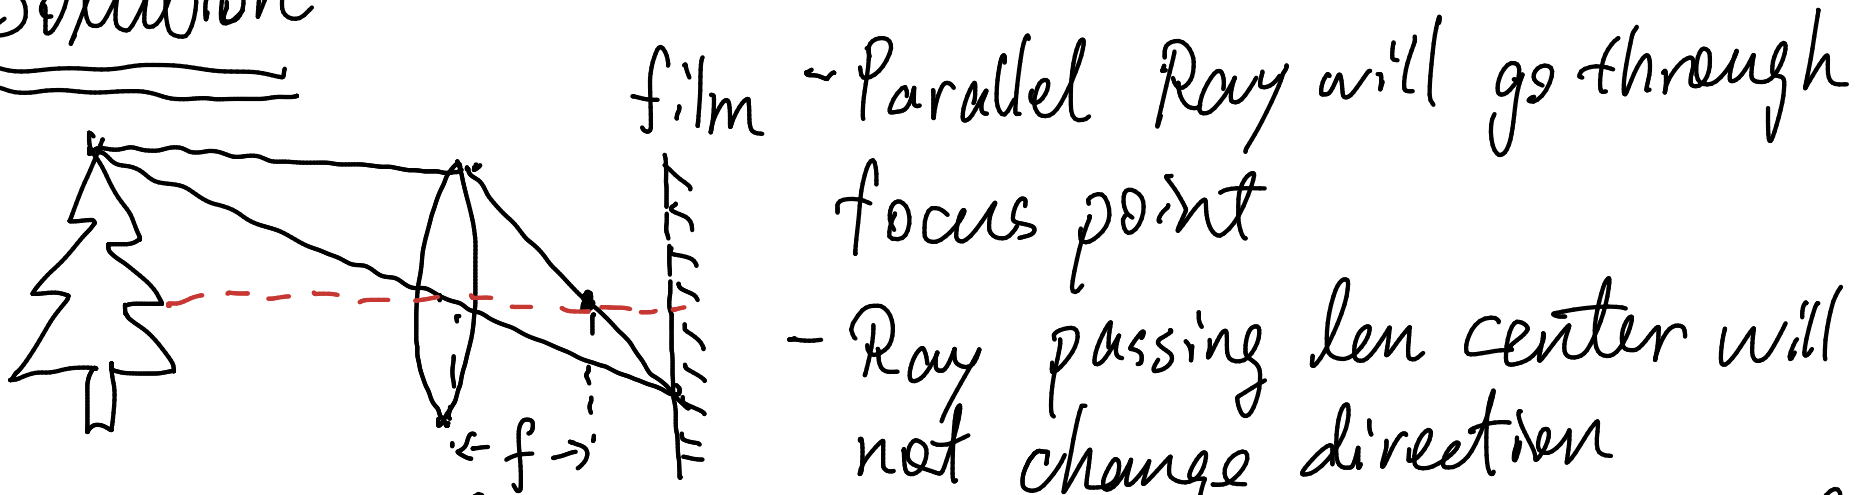 Solution
film
- Parallel Ray will go through
focus point
- Ray passing len center will
not change direction
f